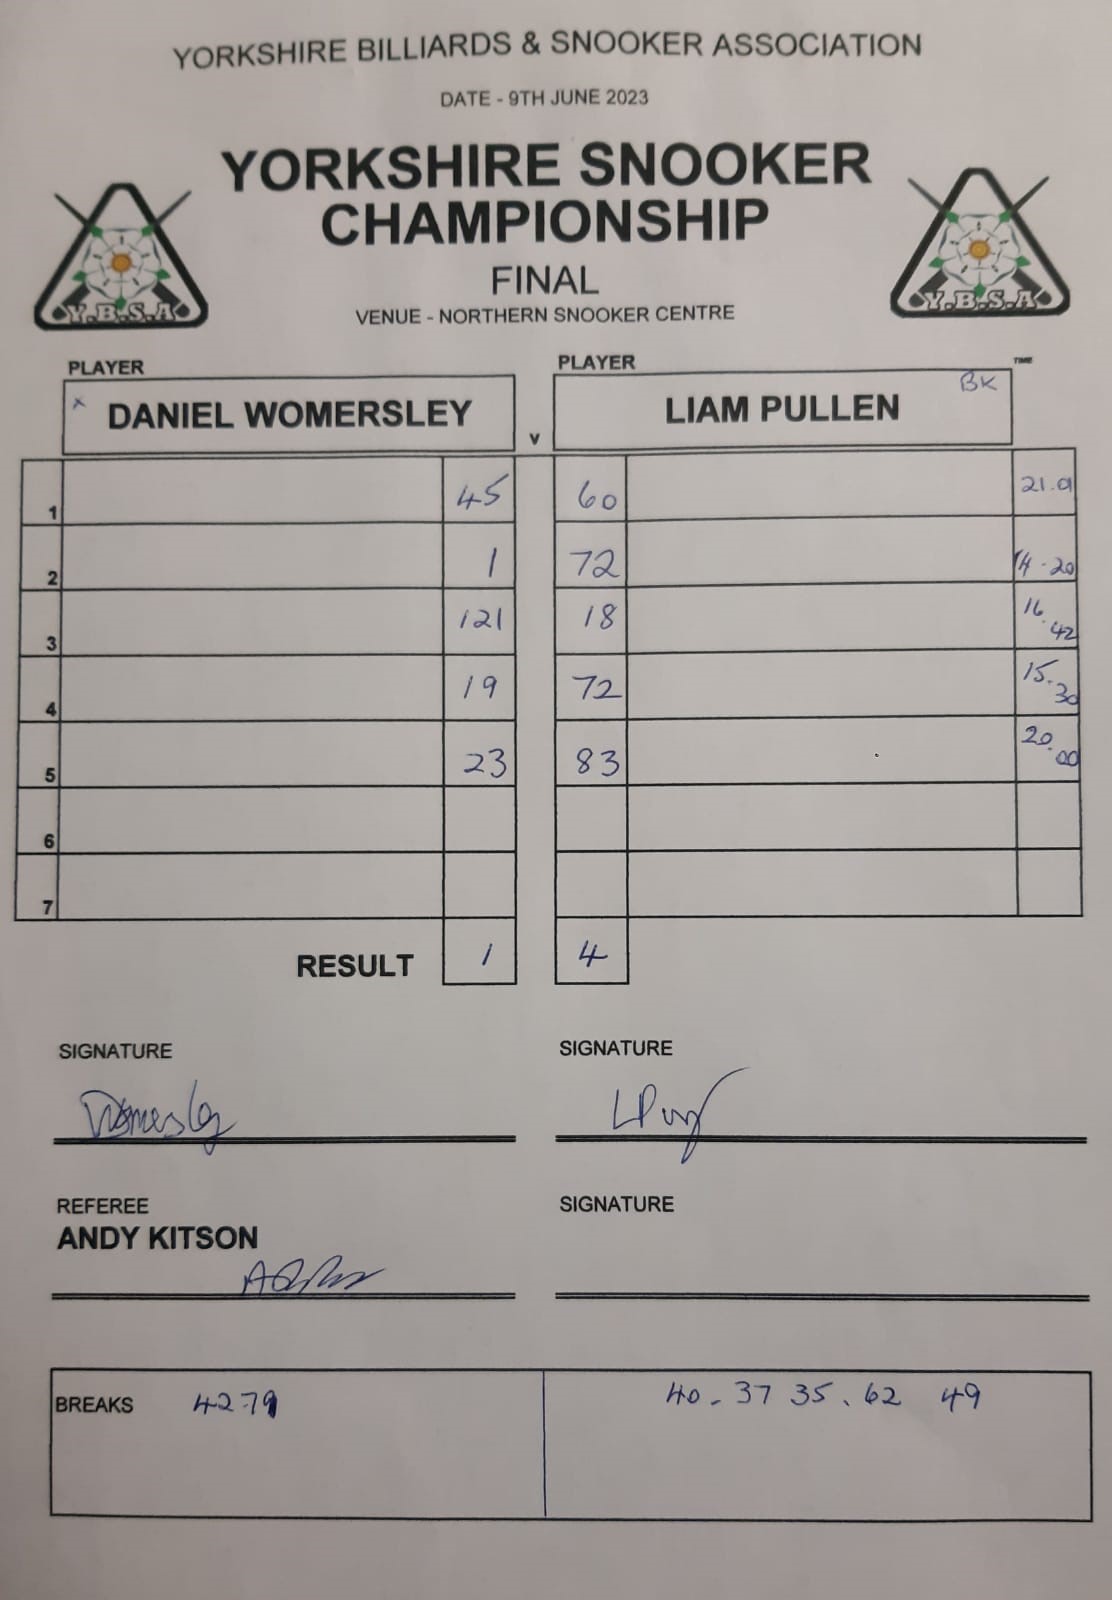 YORKSHIRE BILLIARDS & SNOOKER ASSOCIATION
DATE - 9TH JUNE 2023
YORKSHIRE SNOOKER
CHAMPIONSHIP
FINAL
VENUE - NORTHERN SNOOKER CENTRE
Y.B.S.A
Y.B.S.A
PLAYER PLAYER TIME
x DANIEL WOMERSLEY v LIAM PULLEN BK
1 45 60
2 1 72 14-20
3 121 18 16.42
4 19 72 15.30
5 23 83 20.00
6
7
RESULT 1 4
SIGNATURE SIGNATURE
Womersley
REFEREE SIGNATURE
ANDY KITSON
BREAKS 42-79 40 - 37 35 . 62 49